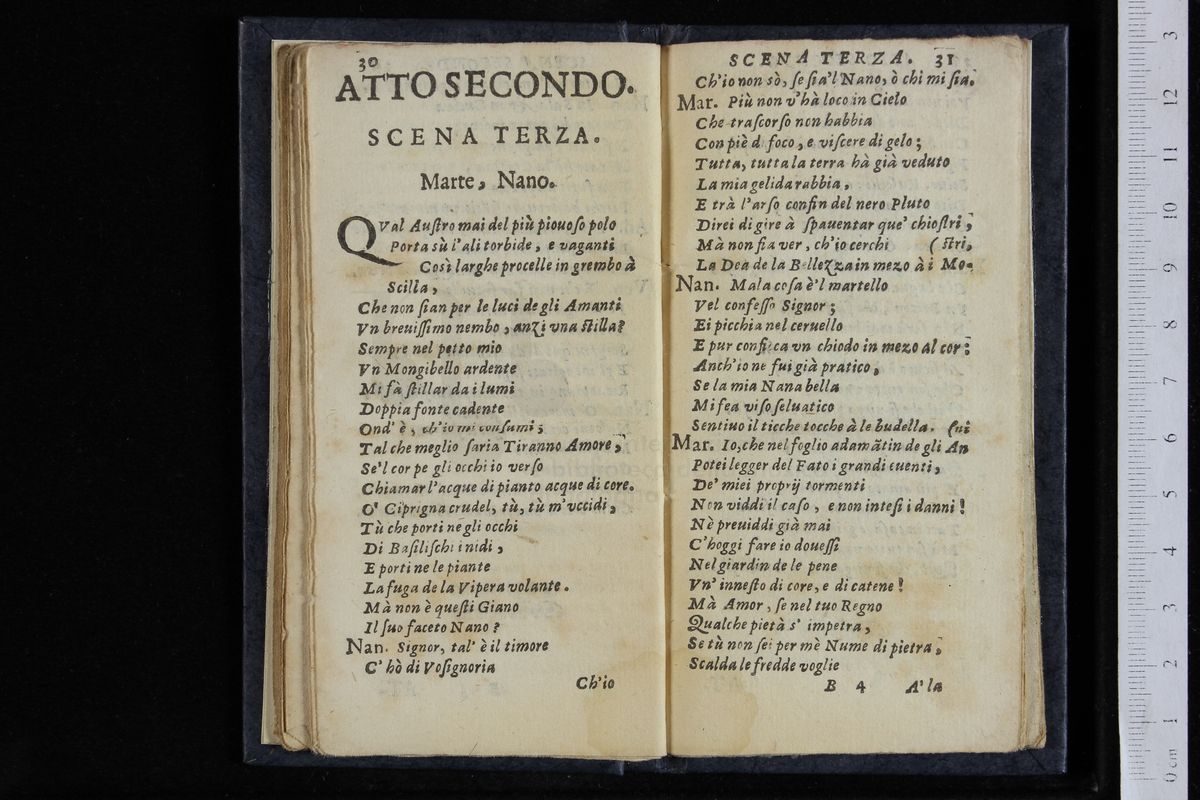 30
ATTO SECONDO.
SCENA TERZA.
Marte, Nano.
QVal Auſtro mai del più piouoſo polo
Porta sù l'ali torbide, e vaganti
Così larghe procelle in grembo à
Scilla,
Che non ſian per le luci de gli Amanti
Vn breuiſſimo nembo, anzi vna ſtilla?
Sempre nel petto mio
Vn Mongibello ardente
Mi fà ſtillar da i lumi
Doppia fonte cadente
Ond' è, ch'io mi conſumi;
Tal che meglio ſaria Tiranno Amore,
Se'l cor pe gli occhi io verſo
Chiamar l'acque di pianto acque di core.
O' Ciprigna crudel, tù, tù m'vccidi,
Tù che porti ne gli occhi
Di Baſiliſchi i nidi,
E porti ne le piante
La fuga de la Vipera volante.
Mà non è queſti Giano
Il ſuo faceto Nano?
Nan. Signor, tal' è il timore
C' hò di Voſignoria
Ch'io
SCENA TERZA. 31
Ch'io non sò, ſe ſia'l Nano, ò chi mi ſia.
Mar. Più non v'hà loco in Cielo
Che traſcorſo non habbia
Con piè d foco, e viſcere di gelo;
Tutta, tutta la terra hà già veduto
La mia gelida rabbia,
E trà l'arſo confin del nero Pluto
Direi di gire à ſpauentar que' chioſtri,
Mà non fia ver, ch'io cerchi (ſtri,
La Dea de la Bellezza in mezo à i Mo-
Nan. Mala coſa è'l martello
Vel confeſſo Signor;
Ei picchia nel ceruello
E pur conficca vn chiodo in mezo al cor:
Anch'io ne fui già pratico,
Se la mia Nana bella
Mi fea viſo ſeluatico
Sentiuo il ticche tocche à le budella. (ni
Mar. Io, che nel foglio adamãtin de gli An
Potei legger del Fato i grandi euenti,
De' miei proprij tormenti
Non viddi il caſo, e non inteſi i danni!
Nè preuiddi già mai
C'hoggi fare io doueſſi
Nel giardin de le pene
Vn' inneſto di core, e di catene!
Mà Amor, ſe nel tuo Regno
Qualche pietà s' impetra,
Se tù non ſei per mè Nume di pietra,
Scalda le fredde voglie
B 4 A' la
0 cm 1 2 3 4 5 6 7 8 9 10 11 12 3